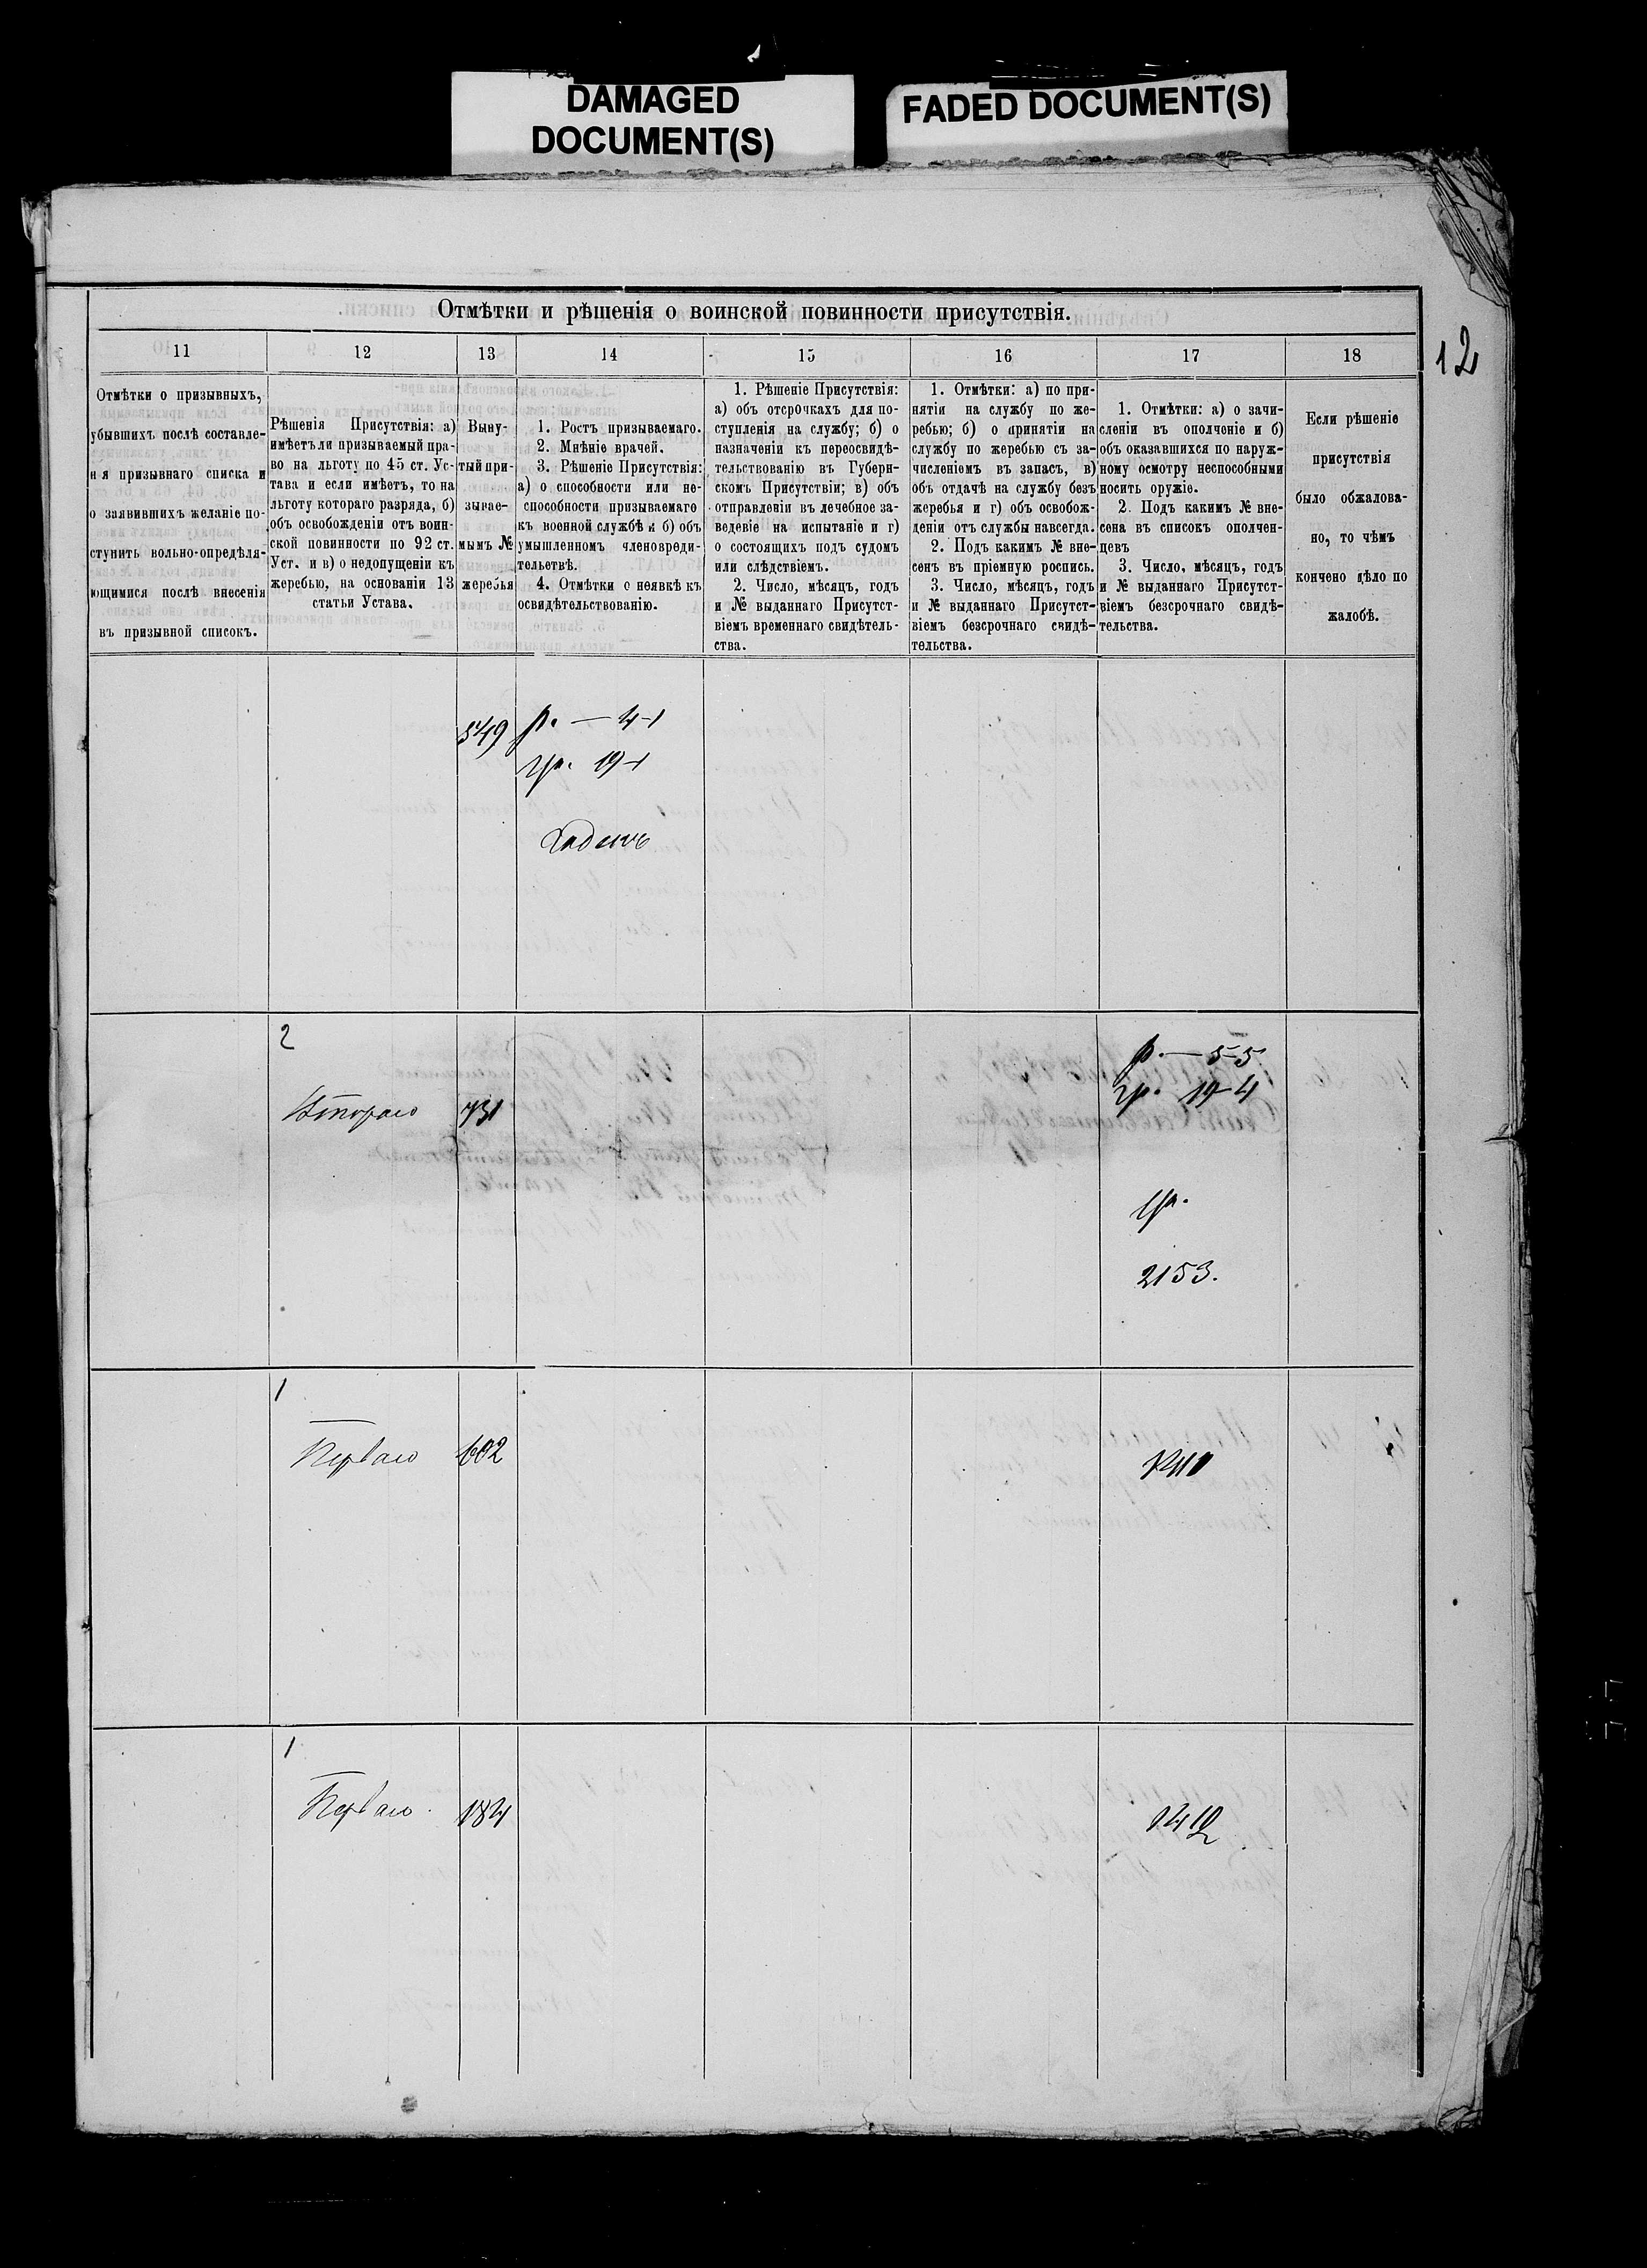 DAMAGED
DOCUMENT(S)
FADED DOCUMENT(S)
Отмѣтки и рѣшенія о воинской повинности присутствія.
12
11
12
13
14
15
16
17
18
Отмѣтки о призывныхъ,
убывшихъ послѣ составле-
нія призывнаго списка и
о заявившихъ желаніе по-
ступить вольно-опредѣля-
ющимися послѣ внесенія
въ призывной список​ъ.
Рѣшенія Присутствія: а)
имѣетъли призываемый пра-
во на льготу по 45 ст. Ус-
тава и если имѣетъ, то на
льготу котораго разряда, б)
объ освобожденіи отъ воин-
ской повинности по 92 ст.
Уст. и в) о недопущеніи къ
жеребью, на основаніи 13
статьи Устава.
Выну-
тый при-
зывае-
мымъ №
жеребья
1. Ростъ призываемаго.
2. Мнѣніе врачей.
3. Рѣшеніе Присутствія:
а) о способности или не-
способности призываемаго
къ военной службѣ и б) объ
умышленномъ членовреди-
тельствѣ.
4. Отмѣтки о неявкѣ къ
освидѣтельствованію.
1. Рѣшеніе Присутствія:
а) объ отсрочкахъ для по-
ступленія на службу; б) о
назначеніи къ переосвидѣ-
тельствованію въ Губерн-
скомъ Присутствіи; в) объ
отправленіи въ лечебное за-
веденіе на испытаніе и г)
о состоящихъ подъ судомъ
или слѣдствіемъ.
2. Число, мѣсяцъ, годъ
и № выданнаго Присутст-
віемъ временнаго свидѣтель-
ства.
1. Отмѣтки: а) по при-
нятіи на службу по же-
ребью; б) о принятіи на
службу по жеребью съ за-
численіемъ въ запасъ, в)
объ отдачѣ на службу безъ
жеребья и г) объ освобож-
деніи отъ службы навсегда.
2. Подъ какимъ № вне-
сенъ въ пріемную роспись.
3. Число, мѣсяцъ, годъ
и № выданнаго Присутст-
віемъ безсрочнаго свидѣ-
тельства.
1. Отмѣтки: а) о зачи-
сленіи въ ополченіе и б)
объ оказавшихся по наруж-
ному осмотру неспособными
носить оружіе.
2. Подъ какимъ № вне-
сена въ списокъ ополчен-
цевъ
3. Число, мѣсяцъ, годъ
и № выданнаго Присутст-
віемъ безсрочнаго свидѣ-
тельства.
Если рѣшеніе
присутствія
было обжалова-
но, то чѣмъ
кончено дѣло по
жалобѣ.
549
р. — 4-1
гр. 19-1
Годенъ
2
Второго
731
р. — 5-5
гр. 19-4
2153.
1
Перваго
602
1
Перваго
184
1412